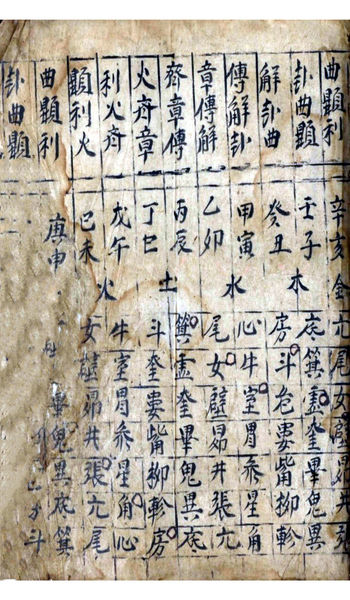 曲顯利 辛亥金 亢尾女壁昴井
卦曲顯 壬子木 底箕虛奎畢鬼異
解卦曲 癸丑 房斗危婁觜柳軫
傳解卦 甲寅水 心牛室胃叅星角
章傳解 乙卯 尾女壁昴井張亢
齊章傳 丙辰土 箕虛奎畢鬼異底
火齊章 丁巳 斗奎婁觜柳軫房
利火齊 戊午火 牛室胃叅星角心
顯利火 己未 女壁昴井張亢尾
曲顯利 庚申 畢鬼異底箕
卦曲顯 斗